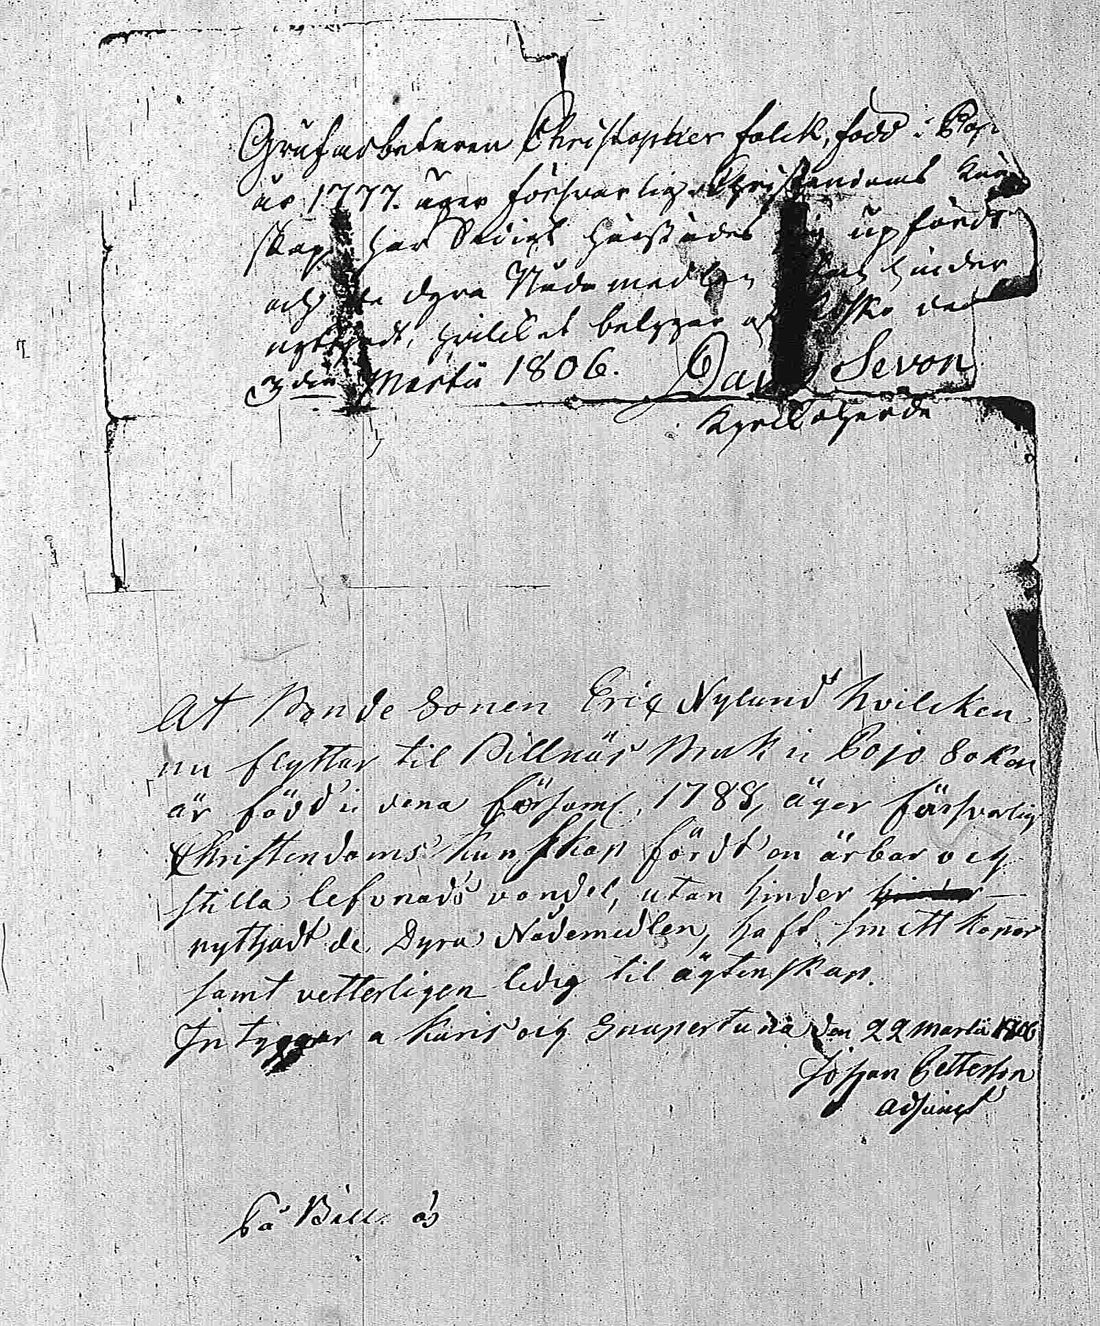 Grufarbetaren Christopher Falck, född i
år 1777. äger försvarlig Christendoms Kun
skap, har Sedigt härstädes sig upfördt
och de dyra Nådemedlen utan hinder
nyttjadt, hvilcket betygar
den Martii 1806. David Sevon
Kyrckoherde
At Bonde Sonen Eric Nylund hvilcken
nu flyttar til Billnäs Bruk i Pojo Soken
är född i dena församl. 1788, äger försvarlig
Christendoms kunskap fördt en ärbar och
stilla lefvnads vandel, utan hinder
nyttjadt de Dyra Nådemedlen, haft små kopor
samt vetterligen ledig til ägtenskap.
Intygar a Karis och Snapertuna den 22 Martii 1806
Johan Petterson
Adjunct
på Bill.